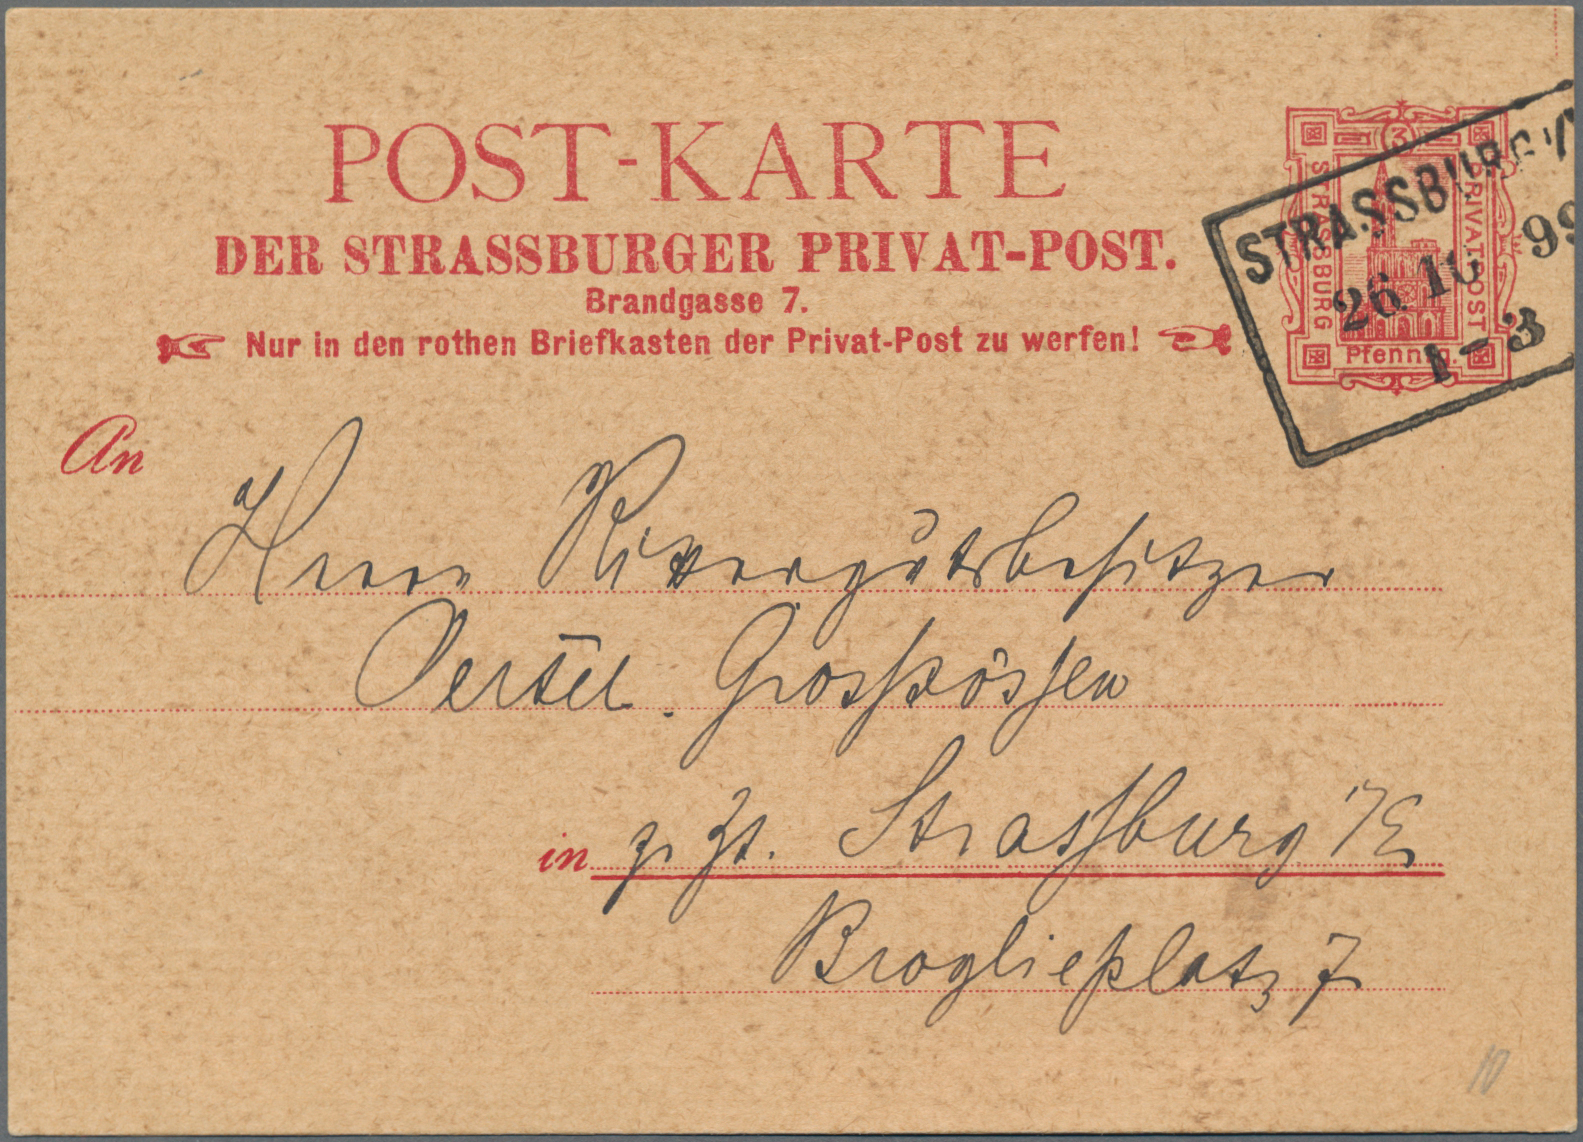 POST-KARTE
DER STRASSBURGER PRIVAT-POST.
Brandgasse 7.
Nur in den rothen Briefkasten der Privat-Post zu werfen!
3
STRASSBURG
PRIVAT-POST
Pfennig.
STRASSBURG
26. 10 99
1-3
An
Herrn Rittergutsbesitzer
Oertel. Grosszössen
in z. Zt. Strassburg i/E
Broglieplatz 7
10